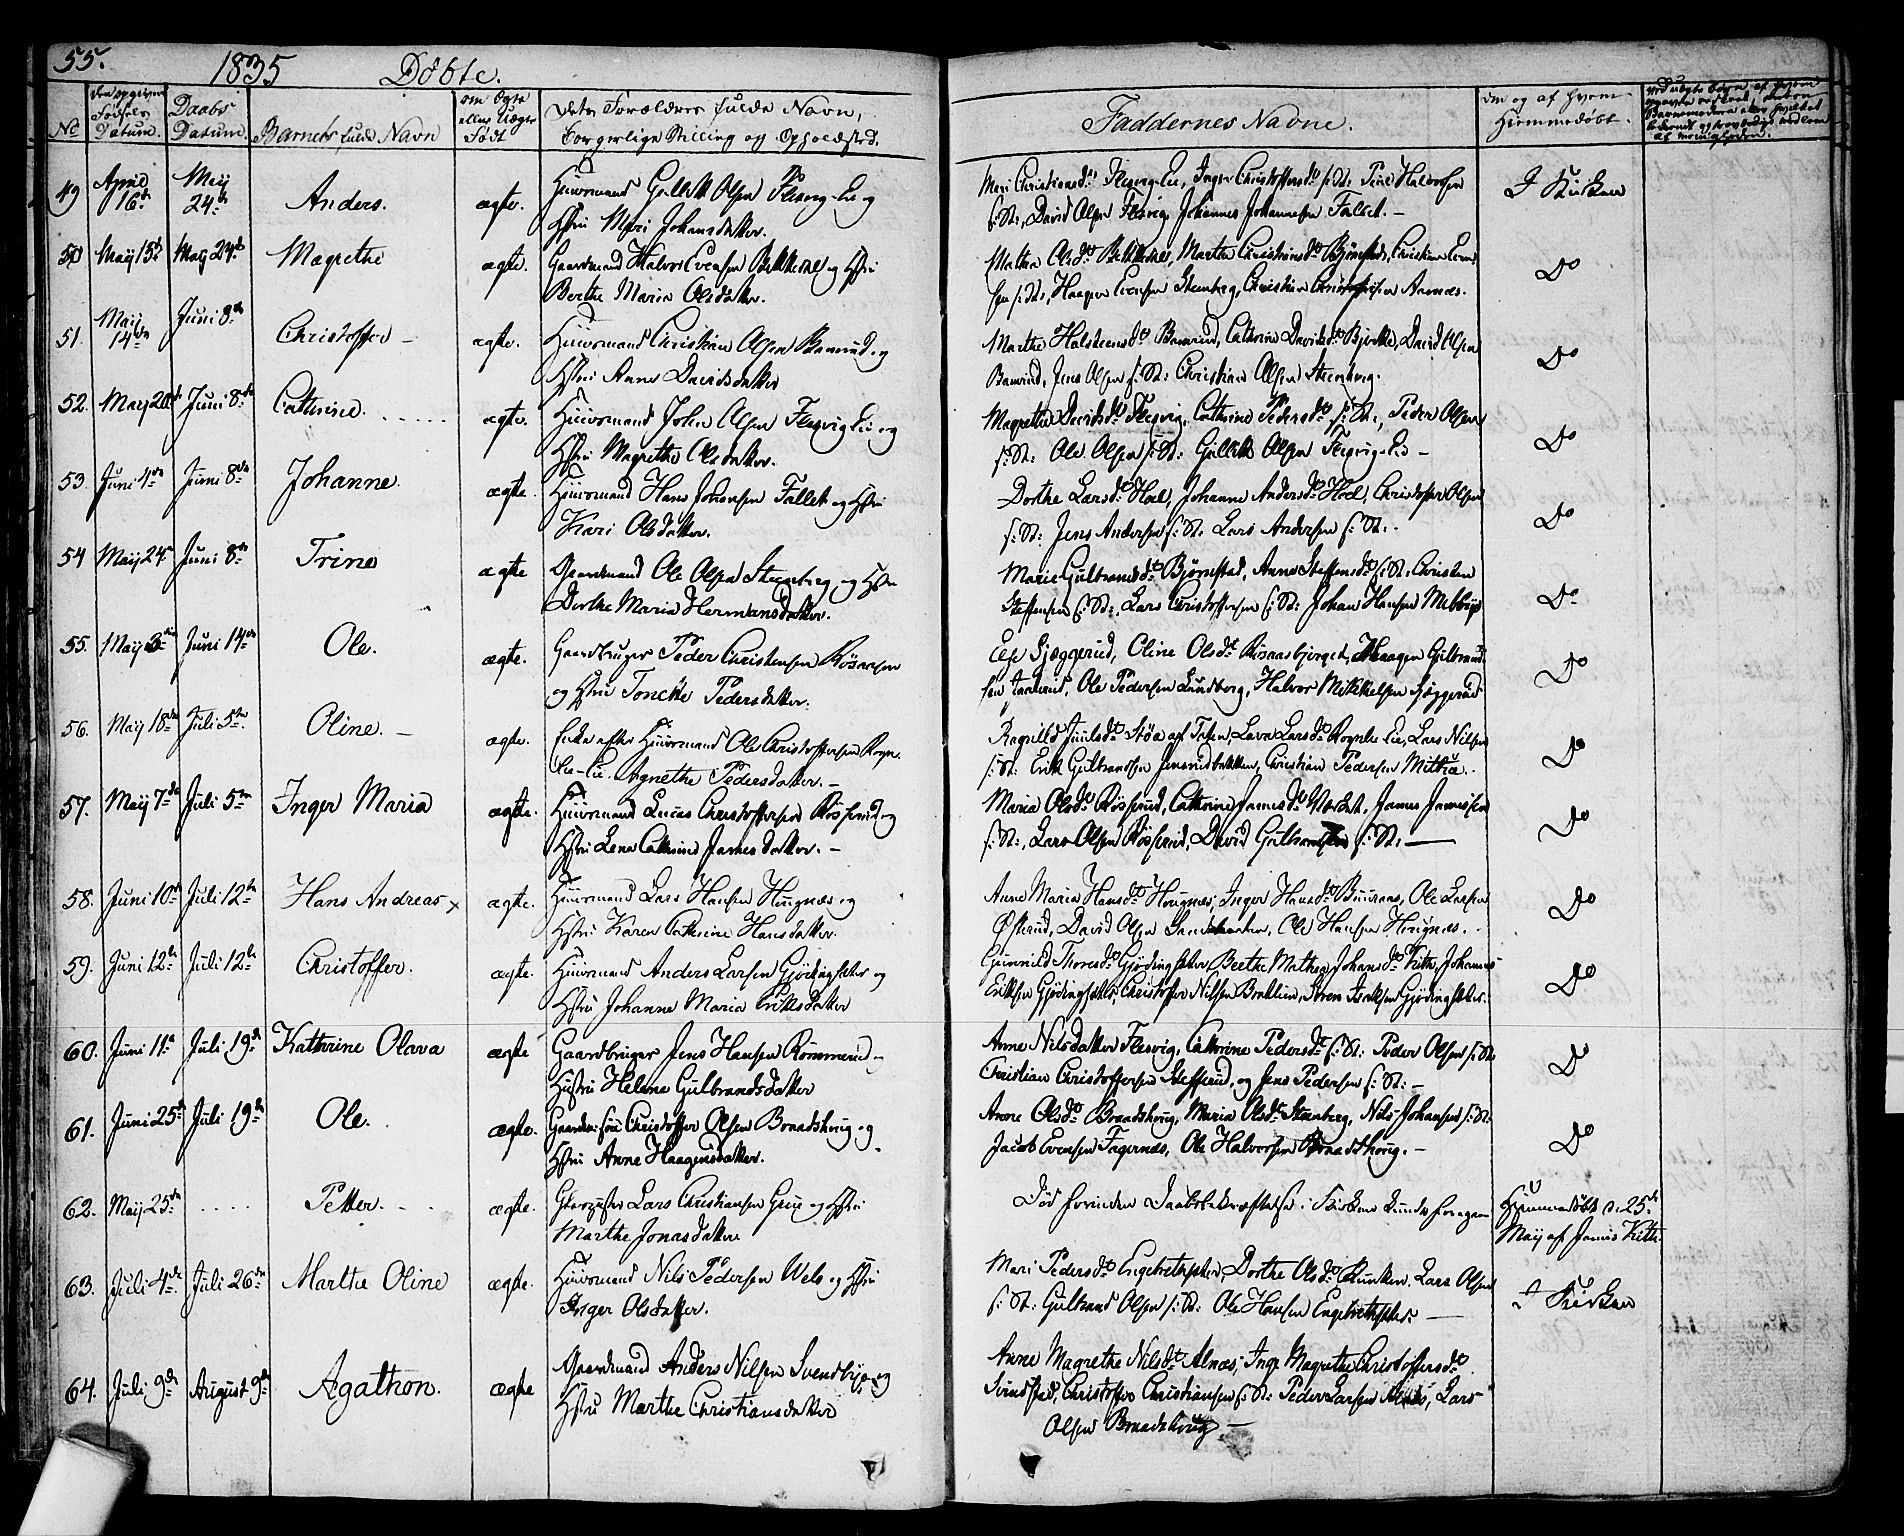 55. 1835 Döbte.
No
den opgivne Födsels Datum.
Daabs Datum.
Barnets fulde Navn
om Ægte eller Uægte Født
Dets Forældres fulde Navn,
borgerlige Stilling og Opholdsted.
Faddernes Navne.
om og af hvem Hjemmedöbt.
49 April 16de May 24de Anders. ægte. Huusmand Gulbek Olsen Flesvig Eie og
Hstru Mari Johansdatter.
Mari Christiansdr Flesvig-Eie, Inger Christoffersdr s: St: Tine Halvorsen
s: St:, David Olsen Flesvig, Johannes Johannesen Fallet. —
I Kirken
50 May 15de May 24de Magrethe ægte. Gaardmand Halvor Evensen Bekkerne og Hstru
Berthe Maria Olsdatter.
Mathea Olsdr Bekkerne, Marthe Christiansdr Björnstad, Christian Even-
sen s: St:, Haagen Evensen Steenberg, Christian Christophersen Aarnæs.
Do
51. May 14de Juni 8de Christoffer — ægte. Huusmand Christian Olsen Bamrud og
Hstru Anne Davidsdatter
Marthe Halsteensdr Bamrud, Cathrine Davidsdr Bjerke, David Olsen
Bamrud, Jens Olsen s: St: Christian Olsen Steenberg.
Do
52. May 20de Juni 8de Cathrine. ægte. Huusmand John Olsen Flesvig Eie og
Hstru Magrethe Olsdatter.
Magrethe Davidsdr Flesvig, Cathrine Pedersdr s: St:, Peder Olsen
s: St: Ole Olsen s: St: Gulbek Olsen Flesvig-Eie —
Do
53. Juni 4de Juni 8de Johanne. ægte. Huusmand Hans Johansen Fallet og Hstru
Kari Olsdatter.
Dorthe Larsdr Hoel, Johanne Andersdr Hoel, Christopher Olsen
s: St: Jens Andersen s: St: Lars Andersen s: St:.
Do
54 May 24de Juni 8de Trine ægte Gaardmand Ole Olsen Steenberg og Hstru
Dorthe Maria Hermansdatter.
Marie Gulbrandsdr Björnstad, Anne Steffensdr s: St: Christen
Steffensen s: St:, Lars Christoffersen s: St: Johan Hansen
Do
55. May Juni 14de Ole. ægte. Gaardbruger Peder Christensen Rösaasen
og Hstru Tonethe Pedersdatter.
Else Sjæggerud, Oline Olsdr Rösaasbjerget, Haagen Gulbrand-
sen Ole Pedersen Lundberg, Halvor Mikkelsen Sjæggerud
Do
56. May 18de Juli 5te Oline. — ægte. Enke efter Huusmand Ole Christoffersen Rogn-
lie-Eie. Agnethe Pedersdatter. —
Ragnild Juulsdr Stöa af Toten, Lava Larsdr Rognlie Eie, Lars Nilsen
s: St: Erik Gulbrandsen Jensrudbakken, Christian Pedersen
Do
57. May 7de Juli 5te Inger Maria ægte. Huusmand Lucas Christoffersen Rösserud og
Hstru Lena Cathrine Jamesdatter. —
Maria Olsdr Rösserud, Cathrine Jamesdr James Jamessen
s: St:, Lars Olsen Rösserud, David Gulbrandsen s: St: —
Do
58. Juni 10de Juli 12te Hans Andreas × ægte. Huusmand Lars Hansen Hougnæs og
Hstru Karen Cathrine Hansdatter.
Anne Maria Hansdr Hougnæs, Inger Hansdr Buuraas, Ole Larsen
Österud, David Olsen Ole Hansen Hougnæs.
Do
59. Juni 12te Juli 12te Christoffer. ægte. Huusmand Anders Larsen Gjödingsæter og
Hstru Johanne Maria Eriksdatter
Gunnild Thoresdr Gjödingsæter, Berthe Mathea Johansdr Kith, Johannes
Eriksen Gjödingsæter, Christoffer Nilsen Gjödingsæter.
Do
60. Juni 11te Juli 19de Kathrine Olava ægte Gaardbruger Jens Hansen Rommerud —
Hustru Helene Gulbrandsdatter
Anne Nilsdatter Flesvig, Cathrine Pedersdr s: St: Peder Olsen s: St:
Christian Christoffersen Stefferud, og Jens Pedersen s: St: —
Do
61. Juni 25de Juli 19de Ole. ægte. Christoffer Olsen Braadshoug og
Hstru Anne Haagensdatter.
Anne Olsdr Braadshoug, Maria Olsdr Steenberg, Nils Johansen s: St:
Jacob Evensen Fagernæs, Ole Halvorsen Braadshoug. —
Do
62. May 25de . . . . Petter. ægte. Glaspuster Lars Christiansen Grue og Hstru
Marthe Jonasdatter
Död forinden Daabsbekræftelse i Kirken kunde foregaae
Hjemmedöbt d. 25de
May af James Kith.
63. Juli 4de Juli 26de Marthe Oline ægte. Huusmand Nils Pedersen Wels og Hstru
Inger Olsdatter.
Mari Pedersdr Engebrethsæter, Dorthe Olsdr Lars Olsen
s: St: Gulbrand Olsen s: St: Ole Hansen Engebrethsæter —
I Kirken
64. Juli 9de August 9de Agathon. ægte Gaardmand Anders Nilsen Svendbye og
Hstru Marthe Christiansdatter
Anne Magrethe Nilsdr Alnæs, Inger Magrethe Christoffersdr
Christoffer Christiansen s: St: Peder Larsen Lars
Olsen Braadshoug —